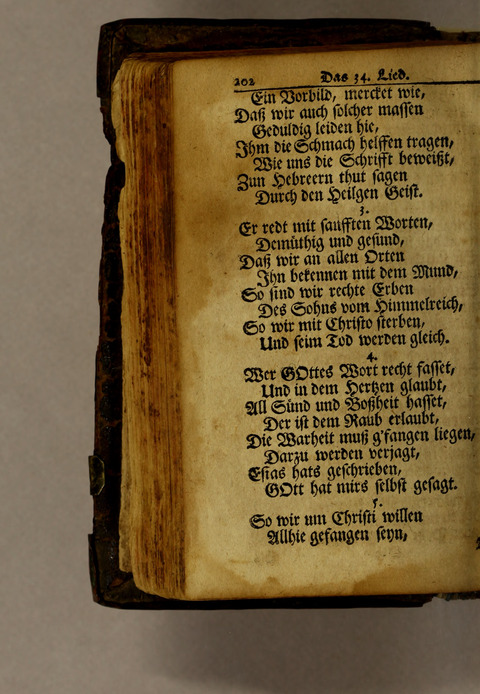 202 Das 34. Lied.
Ein Vorbild, mercket wie,
Daß wir auch solcher massen
Geduldig leiden hie,
Ihm die Schmach helffen tragen,
Wie uns die Schrifft beweißt,
Zun Hebreern thut sagen
Durch den Heilgen Geist.
3.
Er redt mit saufften Worten,
Demüthig und gesund,
Daß wir an allen Orten
Ihn bekennen mit dem Mund,
So sind wir rechte Erben
Des Sohns vom Himmelreich,
So wir mit Christo sterben,
Und seim Tod werden gleich.
4.
Wer GOttes Wort recht fasset,
Und in dem Hertzen glaubt,
All Sünd und Boßheit hasset,
Der ist dem Raub erlaubt,
Die Warheit muß g'fangen liegen,
Darzu werden verjagt,
Esias hats geschrieben,
GOtt hat mirs selbst gesagt.
5.
So wir um Christi willen
Allhie gefangen seyn,